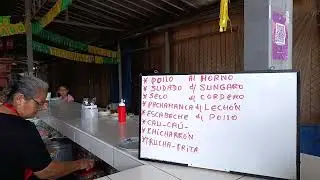 * POLLO AL HORNO
* SUDADO d/ SUNGARO
* SECO d/ CORDERO
* PACHAMANCA d/ LECHÓN
* ESCABECHE d/ POLLO
* CAU-CAU-
* CHICHARRÓN
* TRUCHA-FRITA